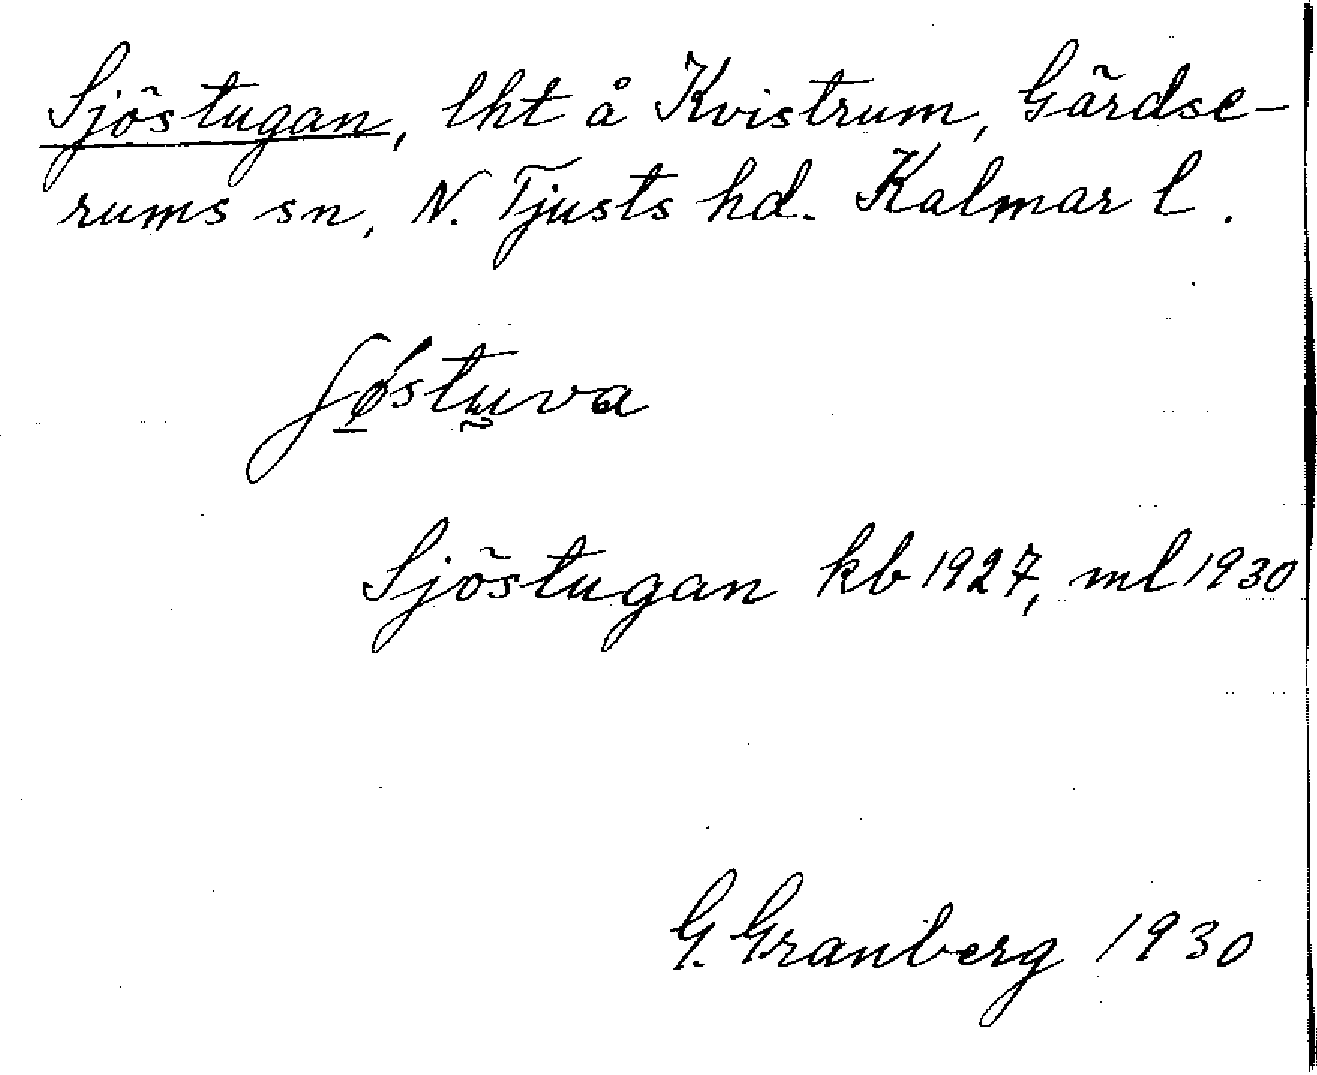 Sjöstugan, lht å Kvistrum, Gärdse-
rums sn, N. Tjusts hd. Kalmar l.
ʃǿ̱stṵva
Sjöstugan kb 1927, ml 1930
G. Granberg 1930